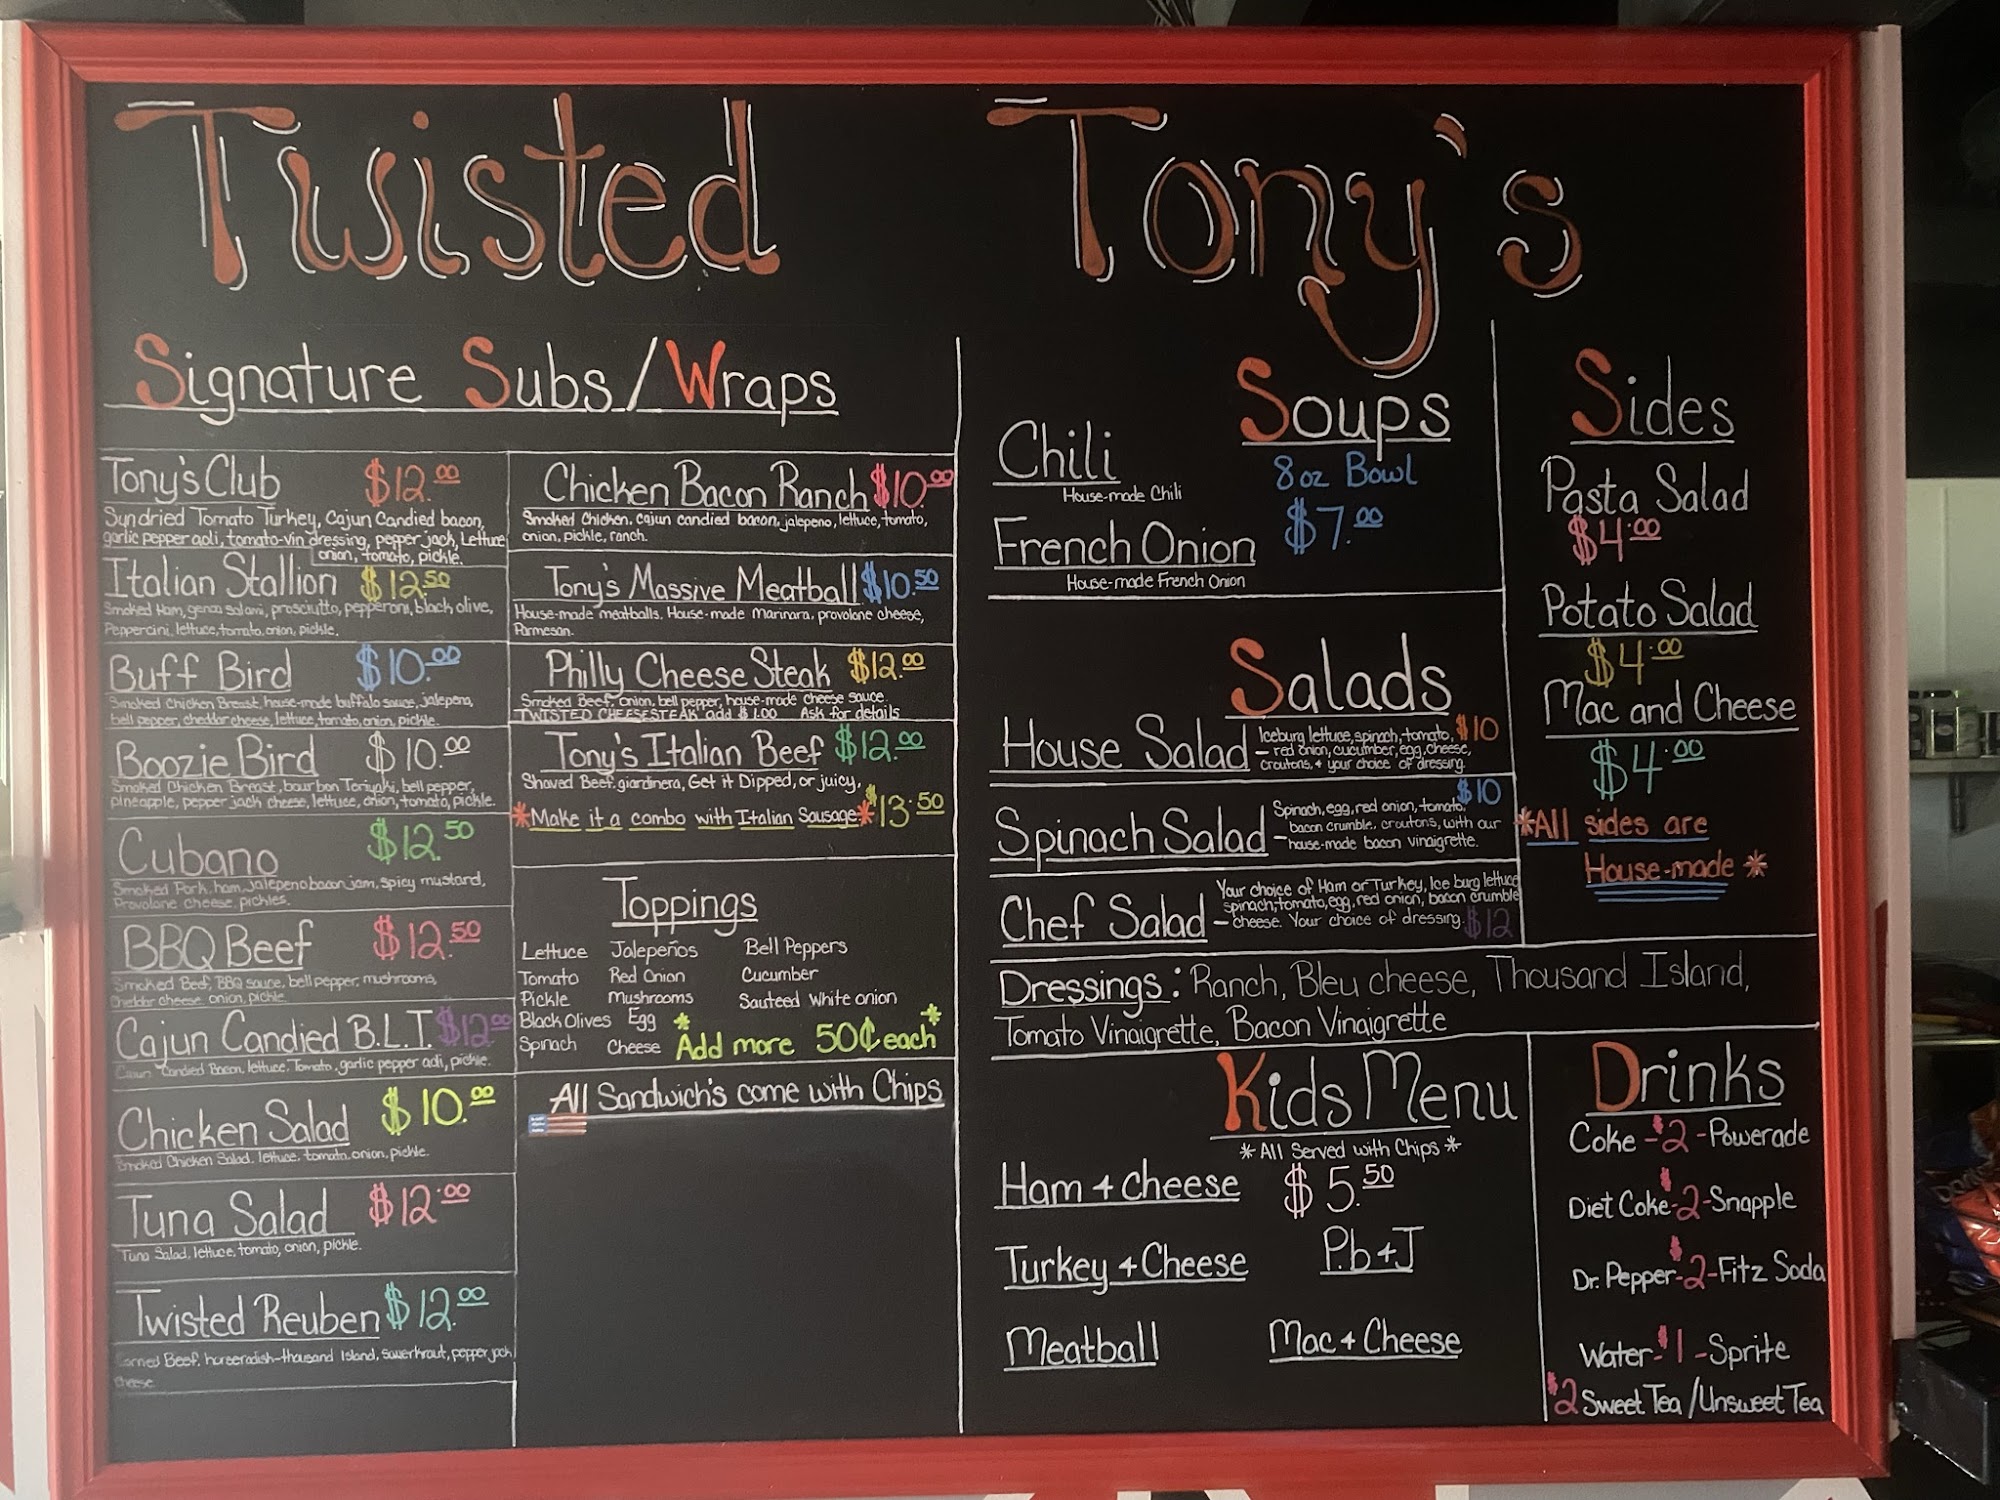 Twisted Tony's
Signature Subs/Wraps
Tony's Club $12.00
Syndried Tomato Turkey, Cajun Candied bacon,
garlic pepper aoli, tomato-vin dressing, pepper jack, Lettuce
onion, tomato, pickle.
Italian Stallion $12.50
Smoked Ham, genoa salami, prosciutto, pepperoni, black olive,
Peppercini, lettuce, tomato, onion, pickle.
Buff Bird $10.00
Smoked Chicken Breast, house-made buffalo sauce, jalepeno,
bell pepper, cheddar cheese, lettuce, tomato, onion, pickle.
Boozie Bird $10.00
Smoked Chicken Breast, bourbon Teriyaki, bell pepper,
pineapple, pepper jack cheese, lettuce, onion, tomato, pickle.
Cubano $12.50
Smoked Pork, ham, jalepeno bacon jam, spicy mustard,
Provolone cheese, pickles.
BBQ Beef $12.50
Smoked Beef, BBQ sauce, bell pepper, mushrooms,
Cheddar cheese, onion, pickle
Cajun Candied B.L.T. $12.00
Cajun Candied Bacon, lettuce, Tomato, garlic pepper aoli, pickle.
Chicken Salad $10.00
Smoked Chicken Salad, lettuce, tomato, onion, pickle.
Tuna Salad $12.00
Tuna Salad, lettuce, tomato, onion, pickle.
Twisted Reuben $12.00
Corned Beef, horseradish-thousand Island, sauerkraut, pepper jack
cheese
Chicken Bacon Ranch $10.00
Smoked Chicken, cajun candied bacon, jalepeno, lettuce, tomato,
onion, pickle, ranch.
Tony's Massive Meatball $10.50
House-made meatballs, House-made Marinara, provolone cheese,
Parmesan.
Philly Cheese Steak $12.00
Smoked Beef, onion, bell pepper, house-made cheese sauce
TWISTED CHEESESTEAK add $1.00 Ask for details
Tony's Italian Beef $12.00
Shaved Beef, giardinera, Get it Dipped, or juicy,
*Make it a combo with Italian Sausage* $13.50
Toppings
Lettuce Jalepeños Bell Peppers
Tomato Red Onion Cucumber
Pickle Mushrooms Sauteed White onion
Black Olives Egg
Spinach Cheese *Add more 50¢ each*
All Sandwich's come with Chips
Soups
8 oz Bowl
$7.00
Chili
House-made Chili
French Onion
House-made French Onion
Salads
House Salad - Iceburg lettuce, spinach, tomato, $10
red onion, cucumber, egg, cheese,
croutons, + your choice of dressing.
Spinach Salad - Spinach, egg, red onion, tomato, $10
bacon crumble, croutons, with our
house-made bacon vinaigrette.
Chef Salad - Your choice of Ham or Turkey, Ice burg lettuce
spinach, tomato, egg, red onion, bacon crumble
cheese. Your choice of dressing. $12
Dressings: Ranch, Bleu cheese, Thousand Island,
Tomato Vinaigrette, Bacon Vinaigrette
Sides
Pasta Salad
$4.00
Potato Salad
$4.00
Mac and Cheese
$4.00
*All sides are
House-made*
Kids Menu
*All Served with Chips*
Ham + Cheese $5.50
Turkey + Cheese P.b + J
Meatball Mac + Cheese
Drinks
Coke - $2 - Powerade
Diet Coke - $2 - Snapple
Dr. Pepper - $2 - Fitz Soda
Water - $1 - Sprite
$2 Sweet Tea / Unsweet Tea